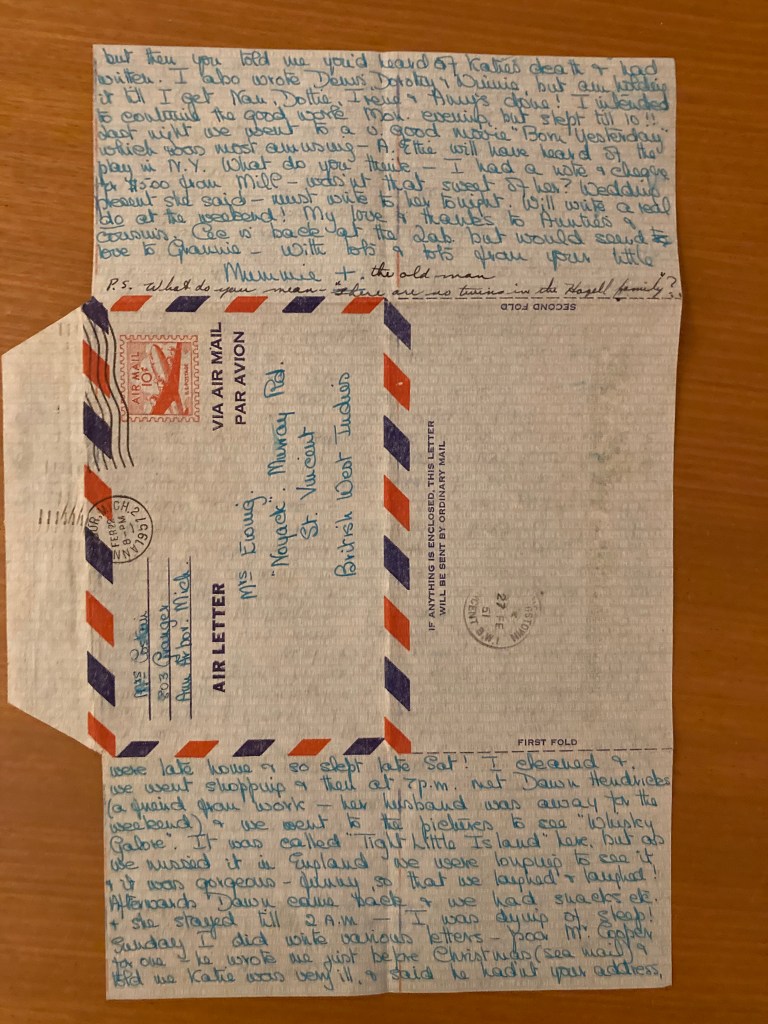 but then you told me you'd heard of Katie's death & had
written. I also wrote Denis, Dorothy & Winnie, but am holding
it till I get Nan, Dottie, Irene & Amy's done! I intended
to continue the good work Mon. evening, but slept till 10!!
Last night we went to a v. good movie "Born Yesterday"
which was most amusing - A. Ettie will have heard of the
play in N.Y. What do you think - I had a note & cheque
for $5.00 from Mill - wasn't that sweet of her? Wedding
present she said - must write to her tonight. Will write a real
do at the weekend! My love & thanks to Aunties &
cousins. Cec is back at the Lab but would send
love to Grannie - with lots & lots from your little
Mummie + the old man
P.S. What do you mean - "there are no twins in the Hazell family"??
SECOND FOLD
AIR MAIL
10¢
U.S. POSTAGE
VIA AIR MAIL
PAR AVION
Mrs Ewing.
"Noyack". Murray Rd.
St. Vincent
British West Indies
ANN ARBOR, MICH. 2
FEB 22
8 - PM
1951
Mrs
803 Granger
Ann Arbor. Mich.
AIR LETTER
IF ANYTHING IS ENCLOSED, THIS LETTER
WILL BE SENT BY ORDINARY MAIL
27 FE
51
FIRST FOLD
were late home & so slept late Sat! I cleaned &
we went shopping & then at 7p.m. met Dawn Hendricks
(a freind from work - her husband was away for the
weekend) & we went to the pictures to see "Whisky
Galore". It was called "Tight Little Island" here, but as
we missed it in England we were longing to see it
& it was gorgeous - funny, so that we laughed & laughed!
Afterwards Dawn came back & we had snacks etc.
& she stayed till 2 A.M - I was dying of sleep!
Sunday I did write various letters - poor Mr. Cooper
for one - he wrote me just before Christmas (sea mail) &
told me Katie was very ill, & said he hadn't your address,